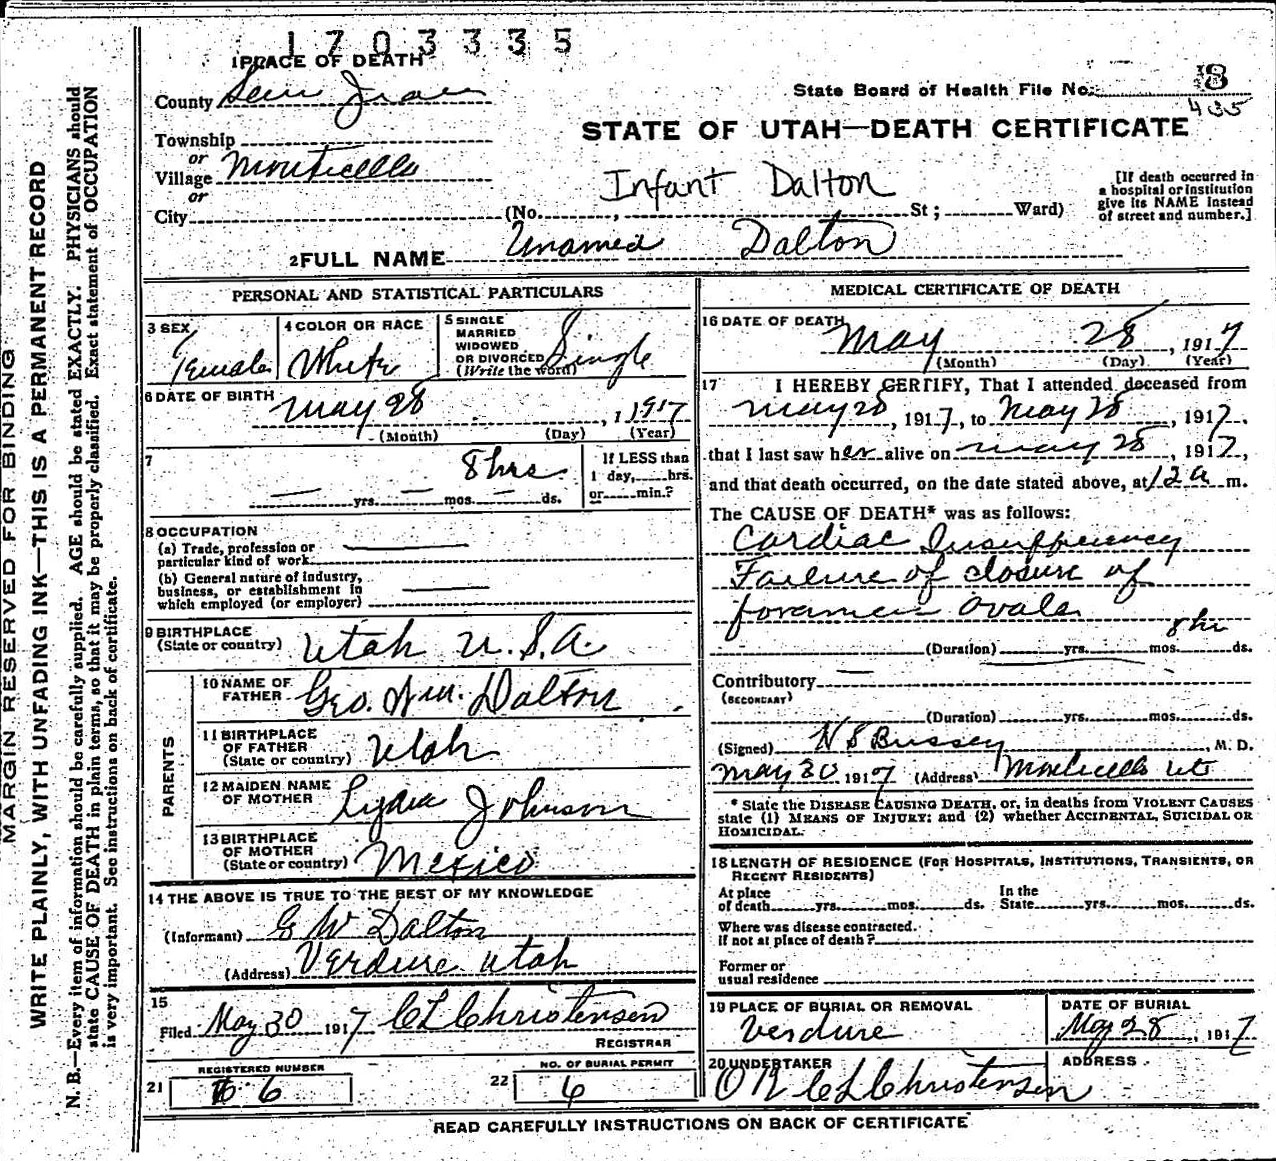 1703335
1 PLACE OF DEATH
County San Juan
State Board of Health File No. 8
435
Township
or
Village Monticello
or
City (No. , St; Ward)
STATE OF UTAH—DEATH CERTIFICATE
Infant Dalton
[If death occurred in
a hospital or institution
give its NAME instead
of street and number.]
2 FULL NAME Unamed Dalton
PERSONAL AND STATISTICAL PARTICULARS
3 SEX
Female
4 COLOR OR RACE
White
5 SINGLE
MARRIED
WIDOWED
OR DIVORCED
(Write the word)
Single
6 DATE OF BIRTH
May 28, 1917
(Month) (Day) (Year)
7
8 hrs
yrs. mos. ds.
If LESS than
1 day, hrs.
or min.?
8 OCCUPATION
(a) Trade, profession or
particular kind of work
(b) General nature of industry,
business, or establishment in
which employed (or employer)
9 BIRTHPLACE
(State or country)
Utah U.S.A.
PARENTS
10 NAME OF
FATHER
Geo. Wm. Dalton
11 BIRTHPLACE
OF FATHER
(State or country)
Utah
12 MAIDEN NAME
OF MOTHER
Lydia Johnson
13 BIRTHPLACE
OF MOTHER
(State or country)
Mexico
14 THE ABOVE IS TRUE TO THE BEST OF MY KNOWLEDGE
(Informant) G W Dalton
(Address) Verdure Utah
15
Filed May 30 1917 C L Christensen
REGISTRAR
REGISTERED NUMBER
21 6
NO. OF BURIAL PERMIT
22 6
MEDICAL CERTIFICATE OF DEATH
16 DATE OF DEATH
May 28, 1917
(Month) (Day) (Year)
17 I HEREBY CERTIFY, That I attended deceased from
May 28, 1917, to May 28, 1917.
that I last saw her alive on May 28, 1917,
and that death occurred, on the date stated above, at 12 a m.
The CAUSE OF DEATH* was as follows:
Cardiac Insufficiency
Failure of closure of
foramen ovale
8 hr
(Duration) yrs. mos. ds.
Contributory
(SECONDARY)
(Duration) yrs. mos. ds.
(Signed) N S Bussey, M. D.
May 30 1917 (Address) Monticello Ut
* State the DISEASE CAUSING DEATH, or, in deaths from VIOLENT CAUSES
state (1) MEANS OF INJURY; and (2) whether ACCIDENTAL, SUICIDAL OR
HOMICIDAL.
18 LENGTH OF RESIDENCE (FOR HOSPITALS, INSTITUTIONS, TRANSIENTS, OR
RECENT RESIDENTS)
At place
of death yrs. mos. ds.
In the
State yrs. mos. ds.
Where was disease contracted.
if not at place of death?
Former or
usual residence
19 PLACE OF BURIAL OR REMOVAL
Verdure
DATE OF BURIAL
May 28, 1917
20 UNDERTAKER
C L Christensen
ADDRESS
READ CAREFULLY INSTRUCTIONS ON BACK OF CERTIFICATE
MARGIN RESERVED FOR BINDING
WRITE PLAINLY, WITH UNFADING INK—THIS IS A PERMANENT RECORD
N. B.—Every item of information should be carefully supplied. AGE should be stated EXACTLY. PHYSICIANS should
state CAUSE OF DEATH in plain terms, so that it may be properly classified. Exact statement of OCCUPATION
is very important. See instructions on back of certificate.